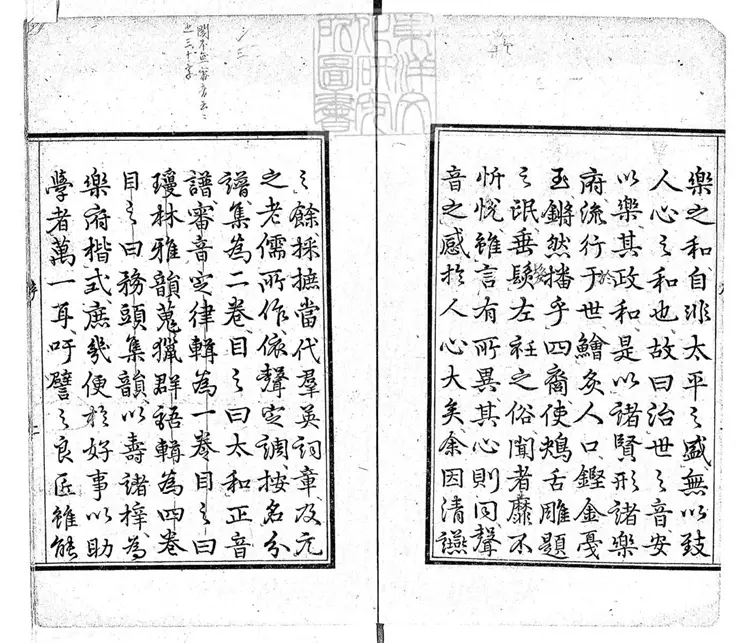 樂之和自非太平之盛無以致
人心之和也故曰治世之音安
以樂其政和是以諸賢形諸樂
府流行于世鱠炙人口鏗金戛
玉鏘然播乎四裔使鴂舌雕題
之氓垂髮左衽之俗聞者靡不
忻悅雖言有所異其心則同聲
音之感於人心大矣余因清讌
之餘採摭當代羣英詞章及元
之老儒所作依聲定調按名分
譜集為二卷目之曰太和正音
譜審音定律輯為一卷目之曰
瓊林雅韻蒐獵群語輯為四卷
目之曰務頭集韻以壽諸梓為
樂府楷式庶幾便於好事以助
學者萬一耳吁譬之良匠雖能
序
二
東洋文
化研究
所圖書